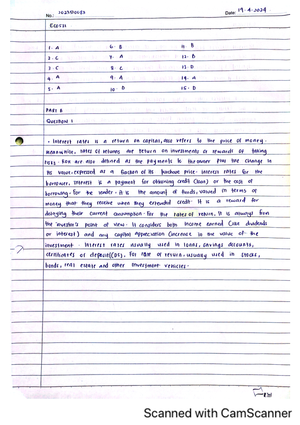 No:
Date: 19-4-2024
ECO531
1. A 6. B 11. B
2. C 7. A 12. B
3. C 8. C 13. D
4. A 9. A 14. A
5. A 10. D 15. D
PART B
Question 1
- Interest rates is a return on capital, also refers to the price of money.
Meanwhile, rates of returns are return on investments or rewards of taking
risks. ROR are also defined as the payments to the owner plus the change in
its value expressed as a fraction of its purchase price. Interest rates for the
borrower, interest is a payment for obtaining credit (loan) or the cost of
borrowing. For the lender, it is the amount of funds, valued in terms of
money that they receive when they extended credit. It is a reward for
delaying their current consumption. For the rates of return, it is always from
the investor's point of view. It considers both income earned (like dividends
or interest) and any capital appreciation (increase in the value of the
investment. Interest rates usually used in loans, savings accounts,
certificates of deposit (CDs). For rate of return, usually used in stocks,
bonds, real estate and other investment vehicles.
Scanned with CamScanner